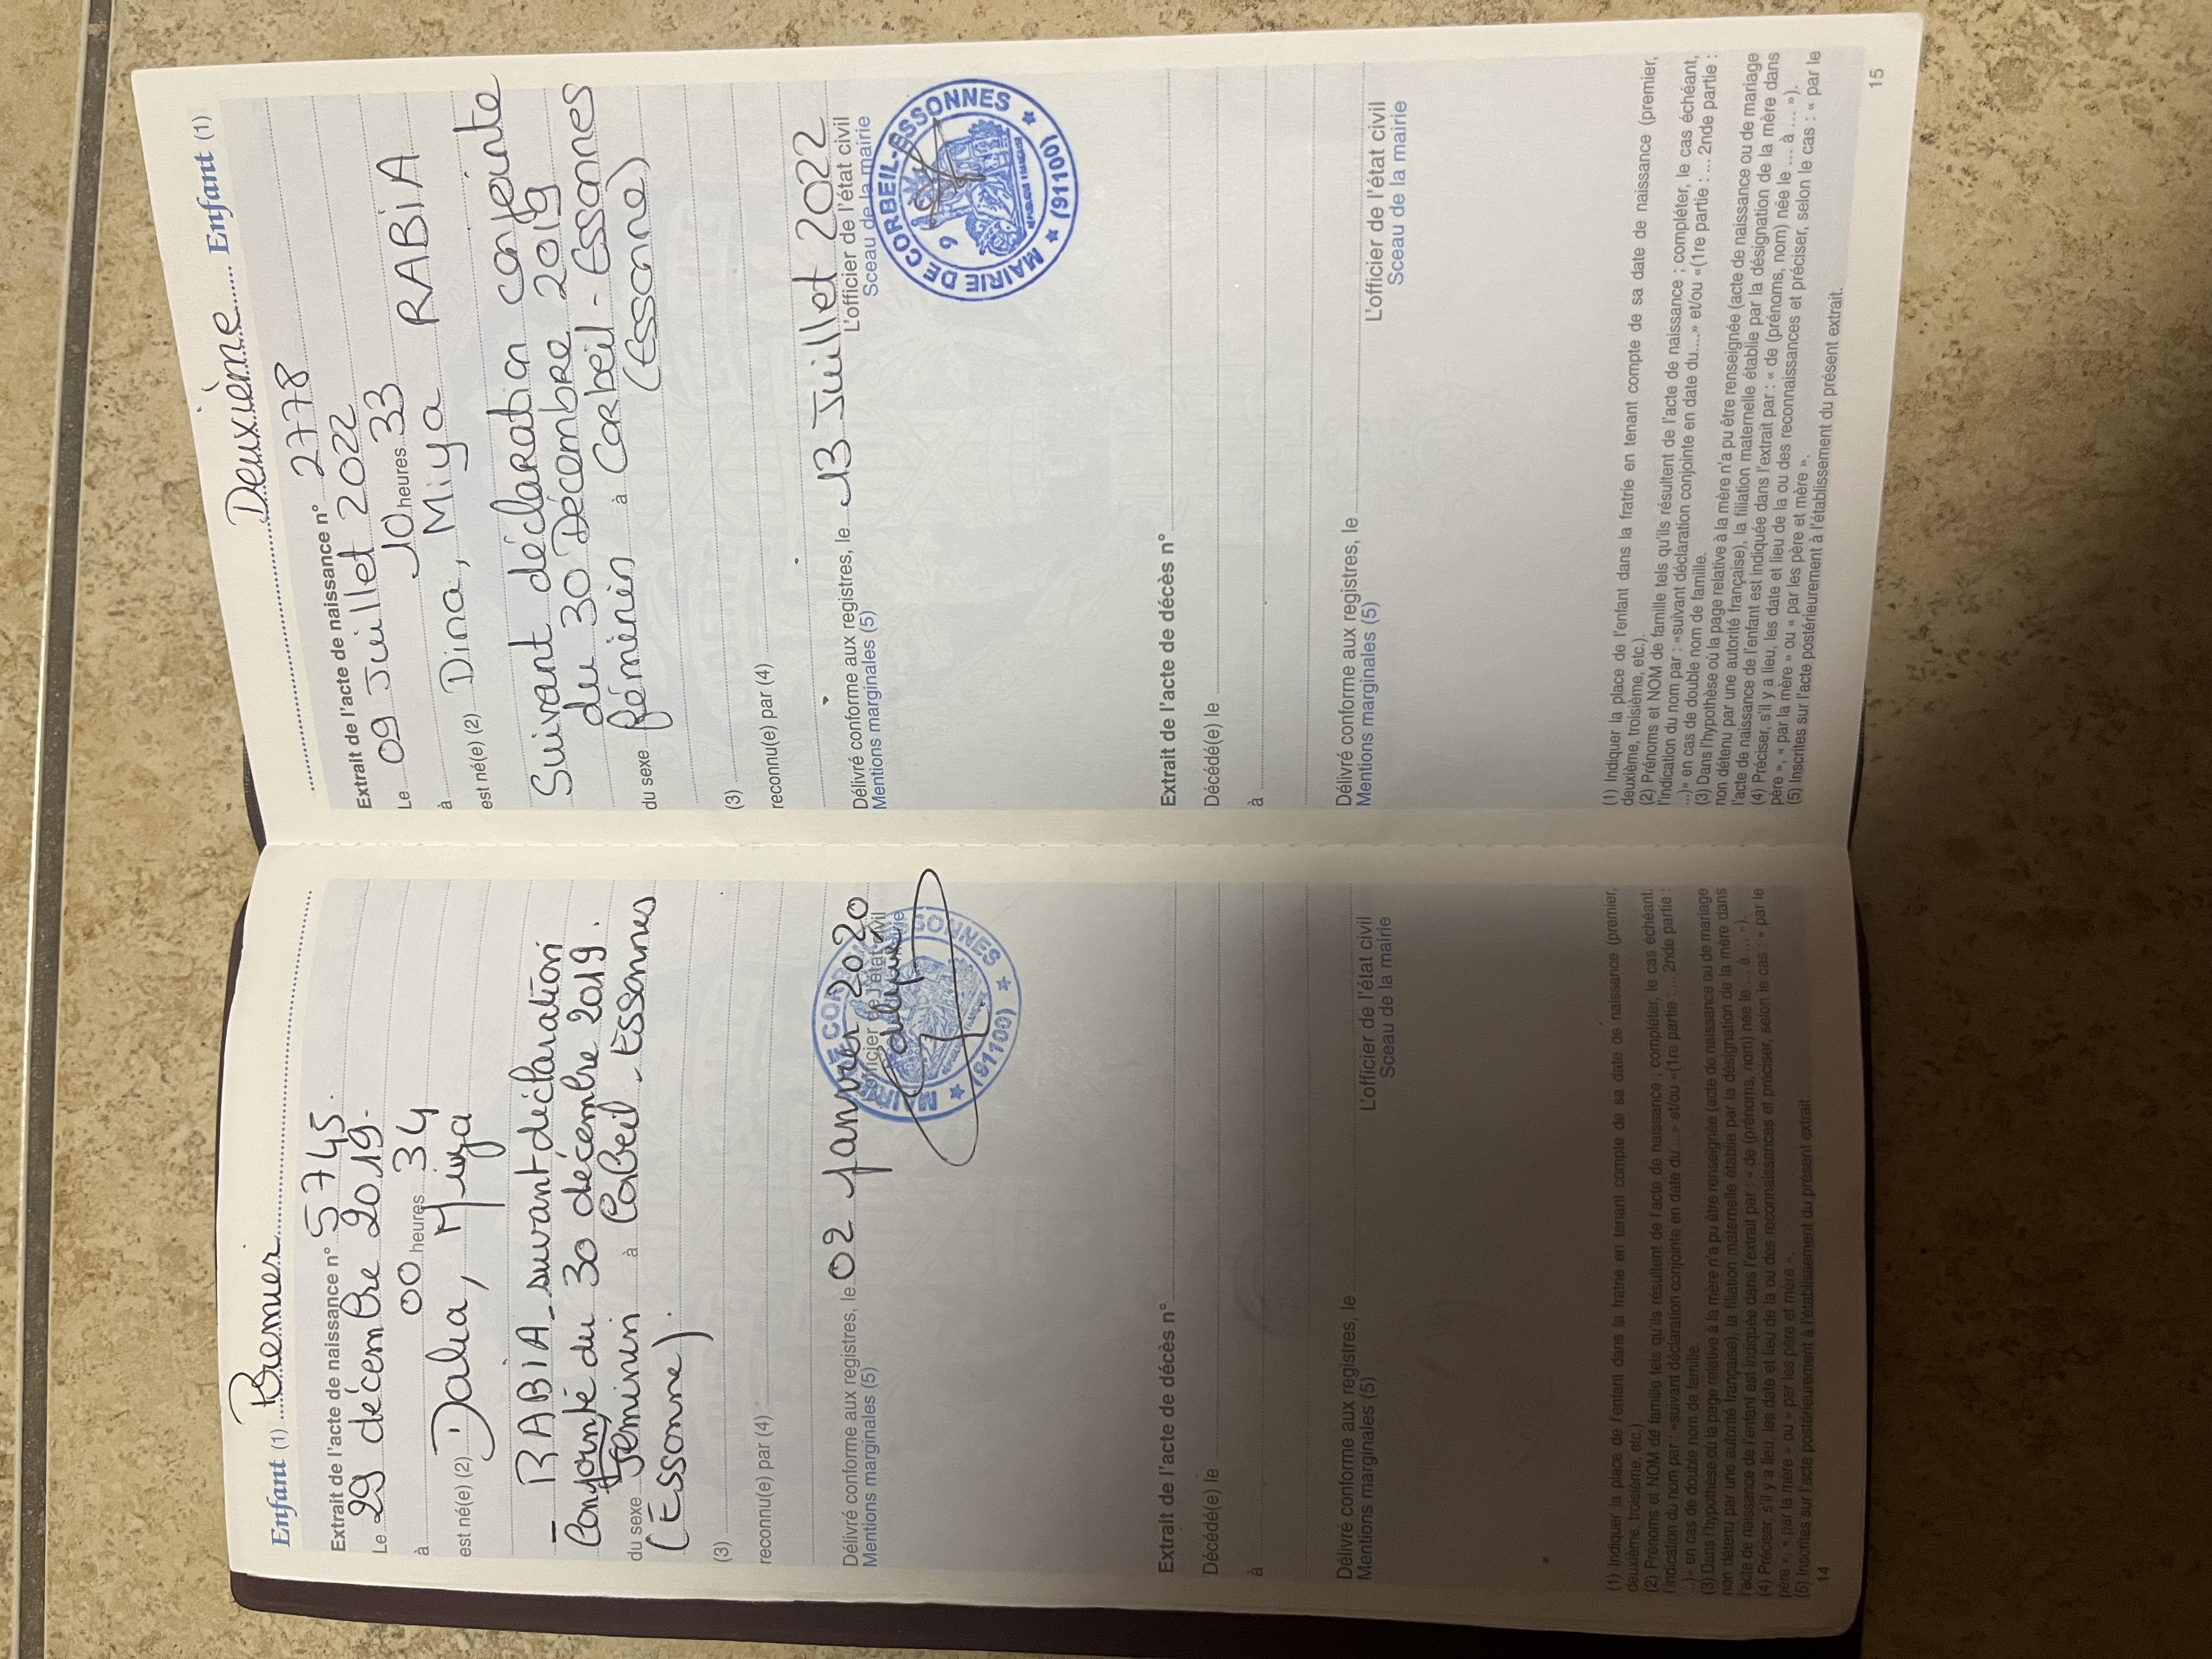 Enfant (1) Premier
Extrait de l'acte de naissance n° 5745.
Le 29 décembre 2019.
à 00 heures 34
est né(e) (2) Dalia, Miya
- RABIA - suivant déclaration
conjointe du 30 décembre 2019.
du sexe féminin à Corbeil-Essonnes
(Essonne).
(3)
reconnu(e) par (4)
Délivré conforme aux registres, le 02 janvier 2020
Mentions marginales (5)
L'officier de l'état civil
MAIRIE DE CORBEIL-ESSONNES
(91100)
Extrait de l'acte de décès n°
Décédé(e) le
à
Délivré conforme aux registres, le
Mentions marginales (5)
L'officier de l'état civil
Sceau de la mairie
(1) Indiquer la place de l'enfant dans la fratrie en tenant compte de sa date de naissance (premier,
deuxième, troisième, etc).
(2) Prénoms et NOM de famille tels qu'ils résultent de l'acte de naissance ; compléter, le cas échéant,
l'indication du nom par : «suivant déclaration conjointe en date du....» et/ou «(1re partie : .... 2nde partie :
...)» en cas de double nom de famille.
(3) Dans l'hypothèse où la page relative à la mère n'a pu être renseignée (acte de naissance ou de mariage
non détenu par une autorité française), la filiation maternelle établie par la désignation de la mère dans
l'acte de naissance de l'enfant est indiquée dans l'extrait par : « de (prénoms, nom) née le .... à ... »).
(4) Préciser, s'il y a lieu, les date et lieu de la ou des reconnaissances et préciser, selon le cas : « par le
père », « par la mère » ou « par les père et mère ».
(5) Inscrites sur l'acte postérieurement à l'établissement du présent extrait.
14
Deuxième Enfant (1)
Extrait de l'acte de naissance n° 2778
Le 09 Juillet 2022
à 10 heures 33
est né(e) (2) Dina, Miya RABIA
Suivant déclaration conjointe
du 30 Décembre 2019
du sexe féminin à Corbeil-Essonnes
(Essonne)
(3)
reconnu(e) par (4)
Délivré conforme aux registres, le 13 Juillet 2022
Mentions marginales (5)
L'officier de l'état civil
Sceau de la mairie
MAIRIE DE CORBEIL-ESSONNES
9
(91100)
Extrait de l'acte de décès n°
Décédé(e) le
à
Délivré conforme aux registres, le
Mentions marginales (5)
L'officier de l'état civil
Sceau de la mairie
(1) Indiquer la place de l'enfant dans la fratrie en tenant compte de sa date de naissance (premier,
deuxième, troisième, etc).
(2) Prénoms et NOM de famille tels qu'ils résultent de l'acte de naissance ; compléter, le cas échéant,
l'indication du nom par : «suivant déclaration conjointe en date du....» et/ou «(1re partie : .... 2nde partie :
...)» en cas de double nom de famille.
(3) Dans l'hypothèse où la page relative à la mère n'a pu être renseignée (acte de naissance ou de mariage
non détenu par une autorité française), la filiation maternelle établie par la désignation de la mère dans
l'acte de naissance de l'enfant est indiquée dans l'extrait par : « de (prénoms, nom) née le .... à ... »).
(4) Préciser, s'il y a lieu, les date et lieu de la ou des reconnaissances et préciser, selon le cas : « par le
père », « par la mère » ou « par les père et mère ».
(5) Inscrites sur l'acte postérieurement à l'établissement du présent extrait.
15